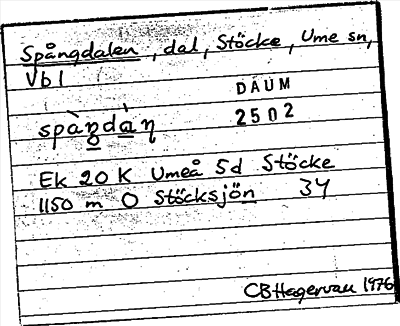 Spångdalen, dal, Stöcke, Ume sn,
Vbl
DAUM
2502
spàn̥dàn̥
Ek 20 K Umeå 5d Stöcke
1150 m O Stöcksjön 34
CBHagervall 1976